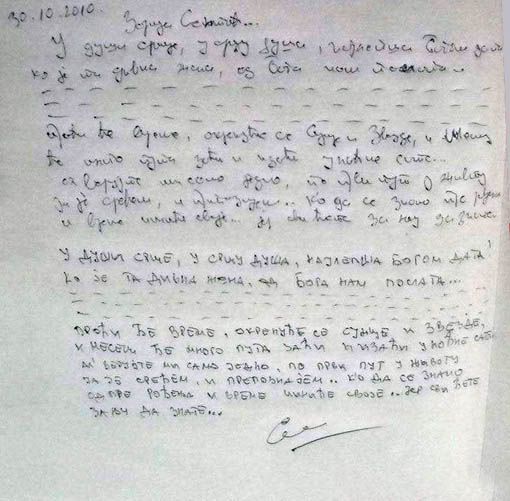 30.10.2010.
Зорица
У души срце, у срцу душа,
ко је та дивна жена, од Бога нам послата..
Проћи ће време, окренуће се Сунце и Звезде, и Месец
ће много пута заћи и изаћи у ноћне сате...
ал верујте ми само једно, по први пут у животу
за је срећем, и препознајем.. Ко да се знамо пре рођења
и време чинише своје... јер ви ћете за њу да знате
У ДУШИ СРЦЕ, У СРЦУ ДУША, НАЈЛЕПША БОГОМ ДАТА!
КО ЈЕ ТА ДИВНА ЖЕНА, ОД БОГА НАМ ПОСЛАТА...
ПРОЋИ ЋЕ ВРЕМЕ, ОКРЕНУЋЕ СЕ СУНЦЕ И ЗВЕЗДЕ,
И МЕСЕЦ ЋЕ МНОГО ПУТА ЗАЋИ И ИЗАЋИ У НОЋНЕ САТЕ
АЛ' ВЕРУЈТЕ МИ САМО ЈЕДНО, ПО ПРВИ ПУТ У ЖИВОТУ
ЈА ЈЕ СРЕЋЕМ, И ПРЕПОЗНАЈЕМ.. КО ДА СЕ ЗНАМО
ОД ПРЕ РОЂЕЊА И ВРЕМЕ ЧИНИЋЕ СВОЈЕ.. ЈЕР СВИ ЋЕТЕ
ЗА ЊУ ДА ЗНАТЕ...